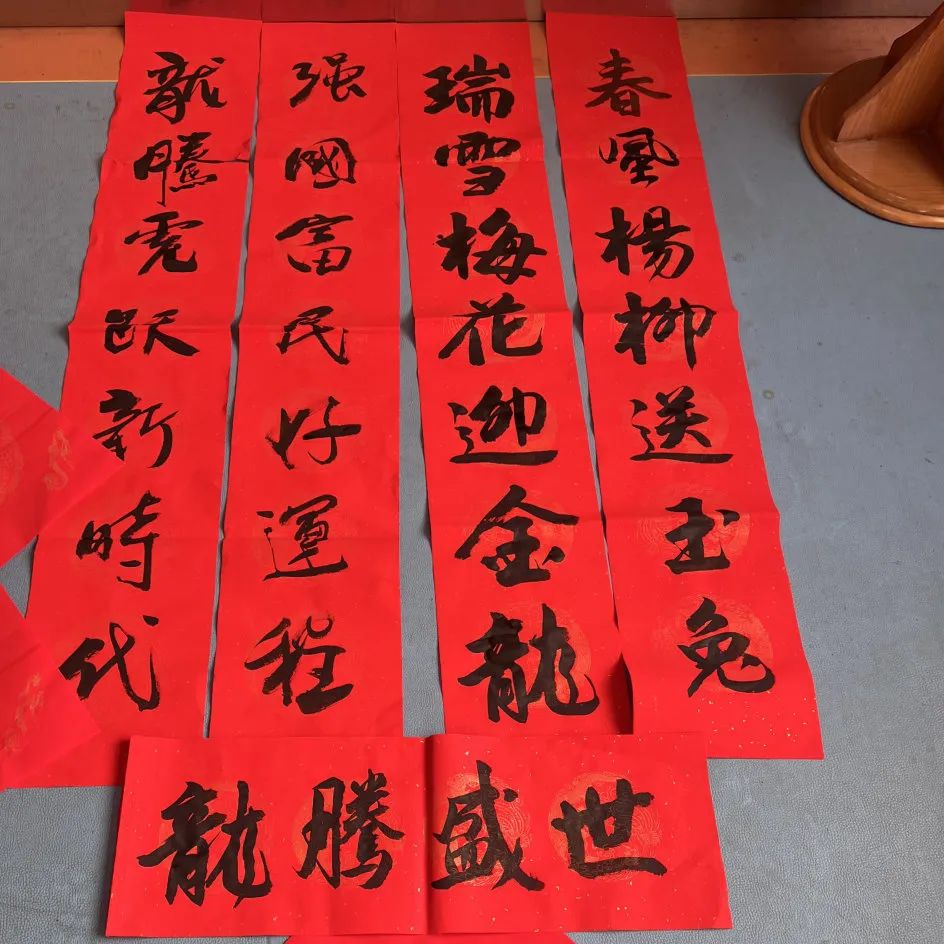 春風楊柳送玉兔
瑞雪梅花迎金龍
强國富民好運程
龍騰虎躍新時代
龍騰盛世